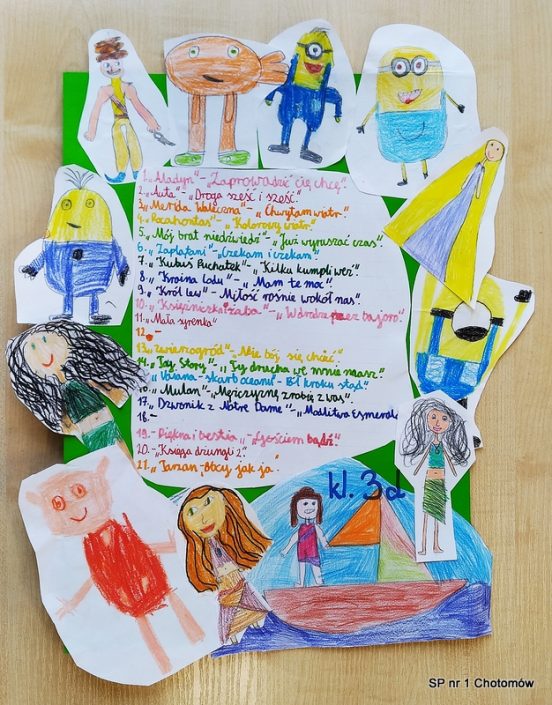 1. „Aladyn" - „Zaprowadzić cię chcę".
2. „Auta" - „Droga sześć i sześć".
3. „Merida Waleczna" - „Chwytam wiatr"
4. „Pocahontas" - „Kolorowy wiatr"
5. „Mój brat niedźwiedź" - „Już wyruszać czas"
6. „Zaplątani" - „Czekam i czekam"
7. „Kubuś Puchatek" - „Kilku kumpli weź"
8. „Kraina Lodu" - „Mam te moc"
9. „Król lew" - „Miłość rośnie wokół nas".
10. „Księżniczka i żaba" - „Wdrolna przez bajoro"
11. „Mała syrenka"
12.
13. „Zwierzogród" - „Nie bój się chcieć"
14. „Toy Story" - „Ty druha we mnie masz"
15. „Vaiana - skarb oceanu" - Pół kroku stąd"
16. „Mulan" - „Mężczyznę zrobię z was".
17. „Dzwonik z Notre Dame" - „Modlitwa Esmeraldy
18. -
19. - „Piękna i bestia" „Gościem bądź"
20. - „Księga dżungli 2"
21. „Tarzan „Obcy jak ja"
kl. 3d
SP nr 1 Chotomów